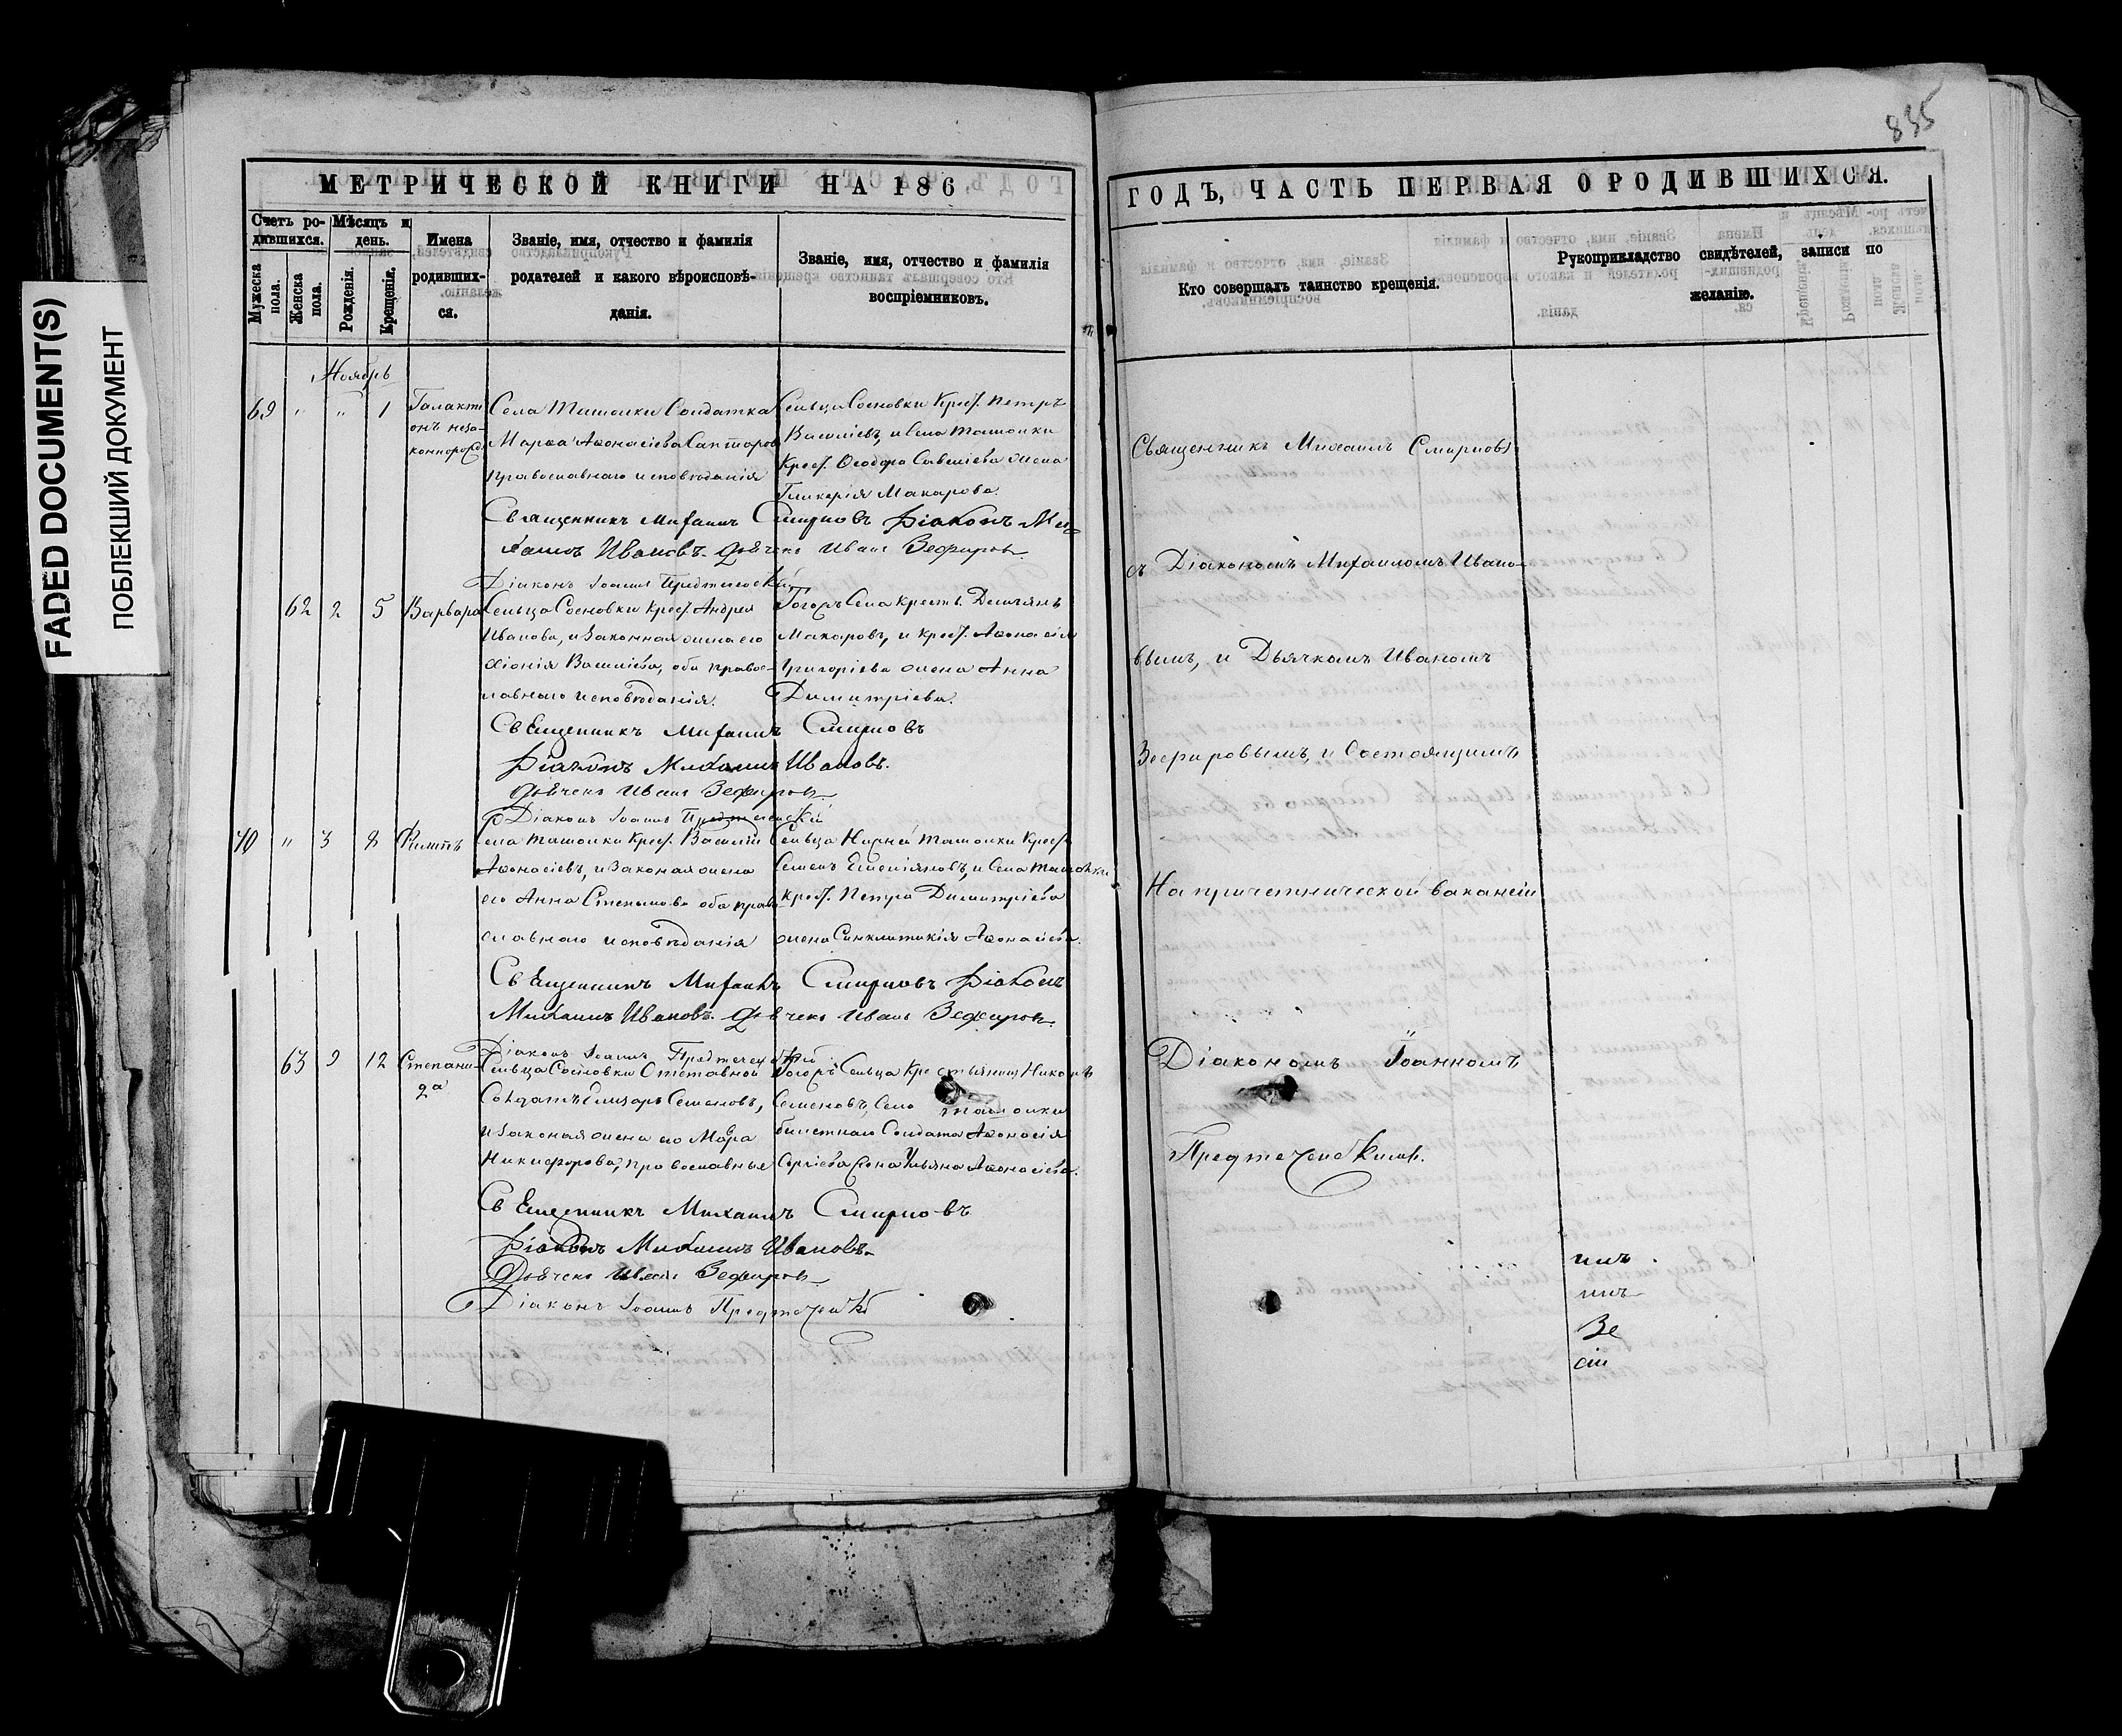 FADED DOCUMENT(S)
ПОБЛЕКШИЙ ДОКУМЕНТ
835
МЕТРИЧЕСКОЙ КНИГИ НА 186
ГОДЪ, ЧАСТЬ ПЕРВАЯ О РОДИВШИХСЯ.
Счетъ родившихся.
Мужеска пола.
Женска пола.
Мѣсяцъ и день.
Рожденія.
Крещенія.
Имена родивших-
ся.
Званіе, имя, отчество и фамилія
родителей и какого вѣроисповѣ-
данія.
Званіе, имя, отчество и фамилія
воспріемниковъ.
Кто совершалъ таинство крещенія.
Рукоприкладство свидѣтелей, записи по
желанію.
Ноябрь
69 " " 1
Галакті
онъ неза-
коннорожд.
Села Ташолки Солдатка
Марѳа Аѳонасіева
православнаго исповѣданія
Сельца Сосновки Крест. Петръ
Василіевъ, и Села Ташолки
Крест. Ѳеодора Савеліева жена
Гликерія Макарова.
Священникъ Михаилъ Смирновъ Діаконъ Ми-
хаилъ Ивановъ. Дьячекъ Иванъ Зефировъ
Діаконъ Іоаннъ Предтеченскій
62 2 5 Варвара
Сельца Сосновки Крест. Андрея
Иванова, и Законная жена его
Хіонія Василіева, оба правос-
лавнаго исповѣданія.
Тогожъ Села Крестьян.
Макаровъ, и Крест. Аѳонасія
Григоріева жена Анна
Димитріева.
Священникъ Михаилъ Смирновъ
Діаконъ Михаилъ Ивановъ.
Дьячекъ Иванъ Зефировъ
Діаконъ Іоаннъ Предтеченскій
70 " 3 8 Филиппъ
Села Ташолки Крест. Василій
Аѳонасіевъ, и Законая жена
его Анна Степанова оба право
славнаго исповѣданія
Сельца Нижней Ташолки Крест.
Семенъ Емеліяновъ, и Села Ташолки
Крест. Петра Димитріева
жена Синклитикія Аѳонасіева.
Священникъ Михаилъ Смирновъ Діаконъ
Михаилъ Ивановъ. Дьячекъ Иванъ Зефировъ
Діаконъ Іоаннъ Предтеченскій
63 9 12
Степани-
да
Сельца Сосновки Отставной
Солдатъ Елизаръ Семеновъ,
и Законая жена его
Никифорова, православные
Тогожъ Сельца Крестьянинъ
Семеновъ, Села Ташолки
билетнаго Солдата Аѳонасія
Сергіева жена Ульяна Аѳонасіева.
Священникъ Михаилъ Смирновъ
Діаконъ Михаилъ Ивановъ.
Дьячекъ Иванъ Зефировъ
Діаконъ Іоаннъ Предтеченскій
Священникъ Михаилъ Смирновъ
съ Діакономъ Михаиломъ Ивано-
вымъ, и Дьячкомъ Иваномъ
Зефировымъ, и Состоящимъ
На причетнической вакансіи
Діакономъ Іоанномъ
Предтеченскимъ.